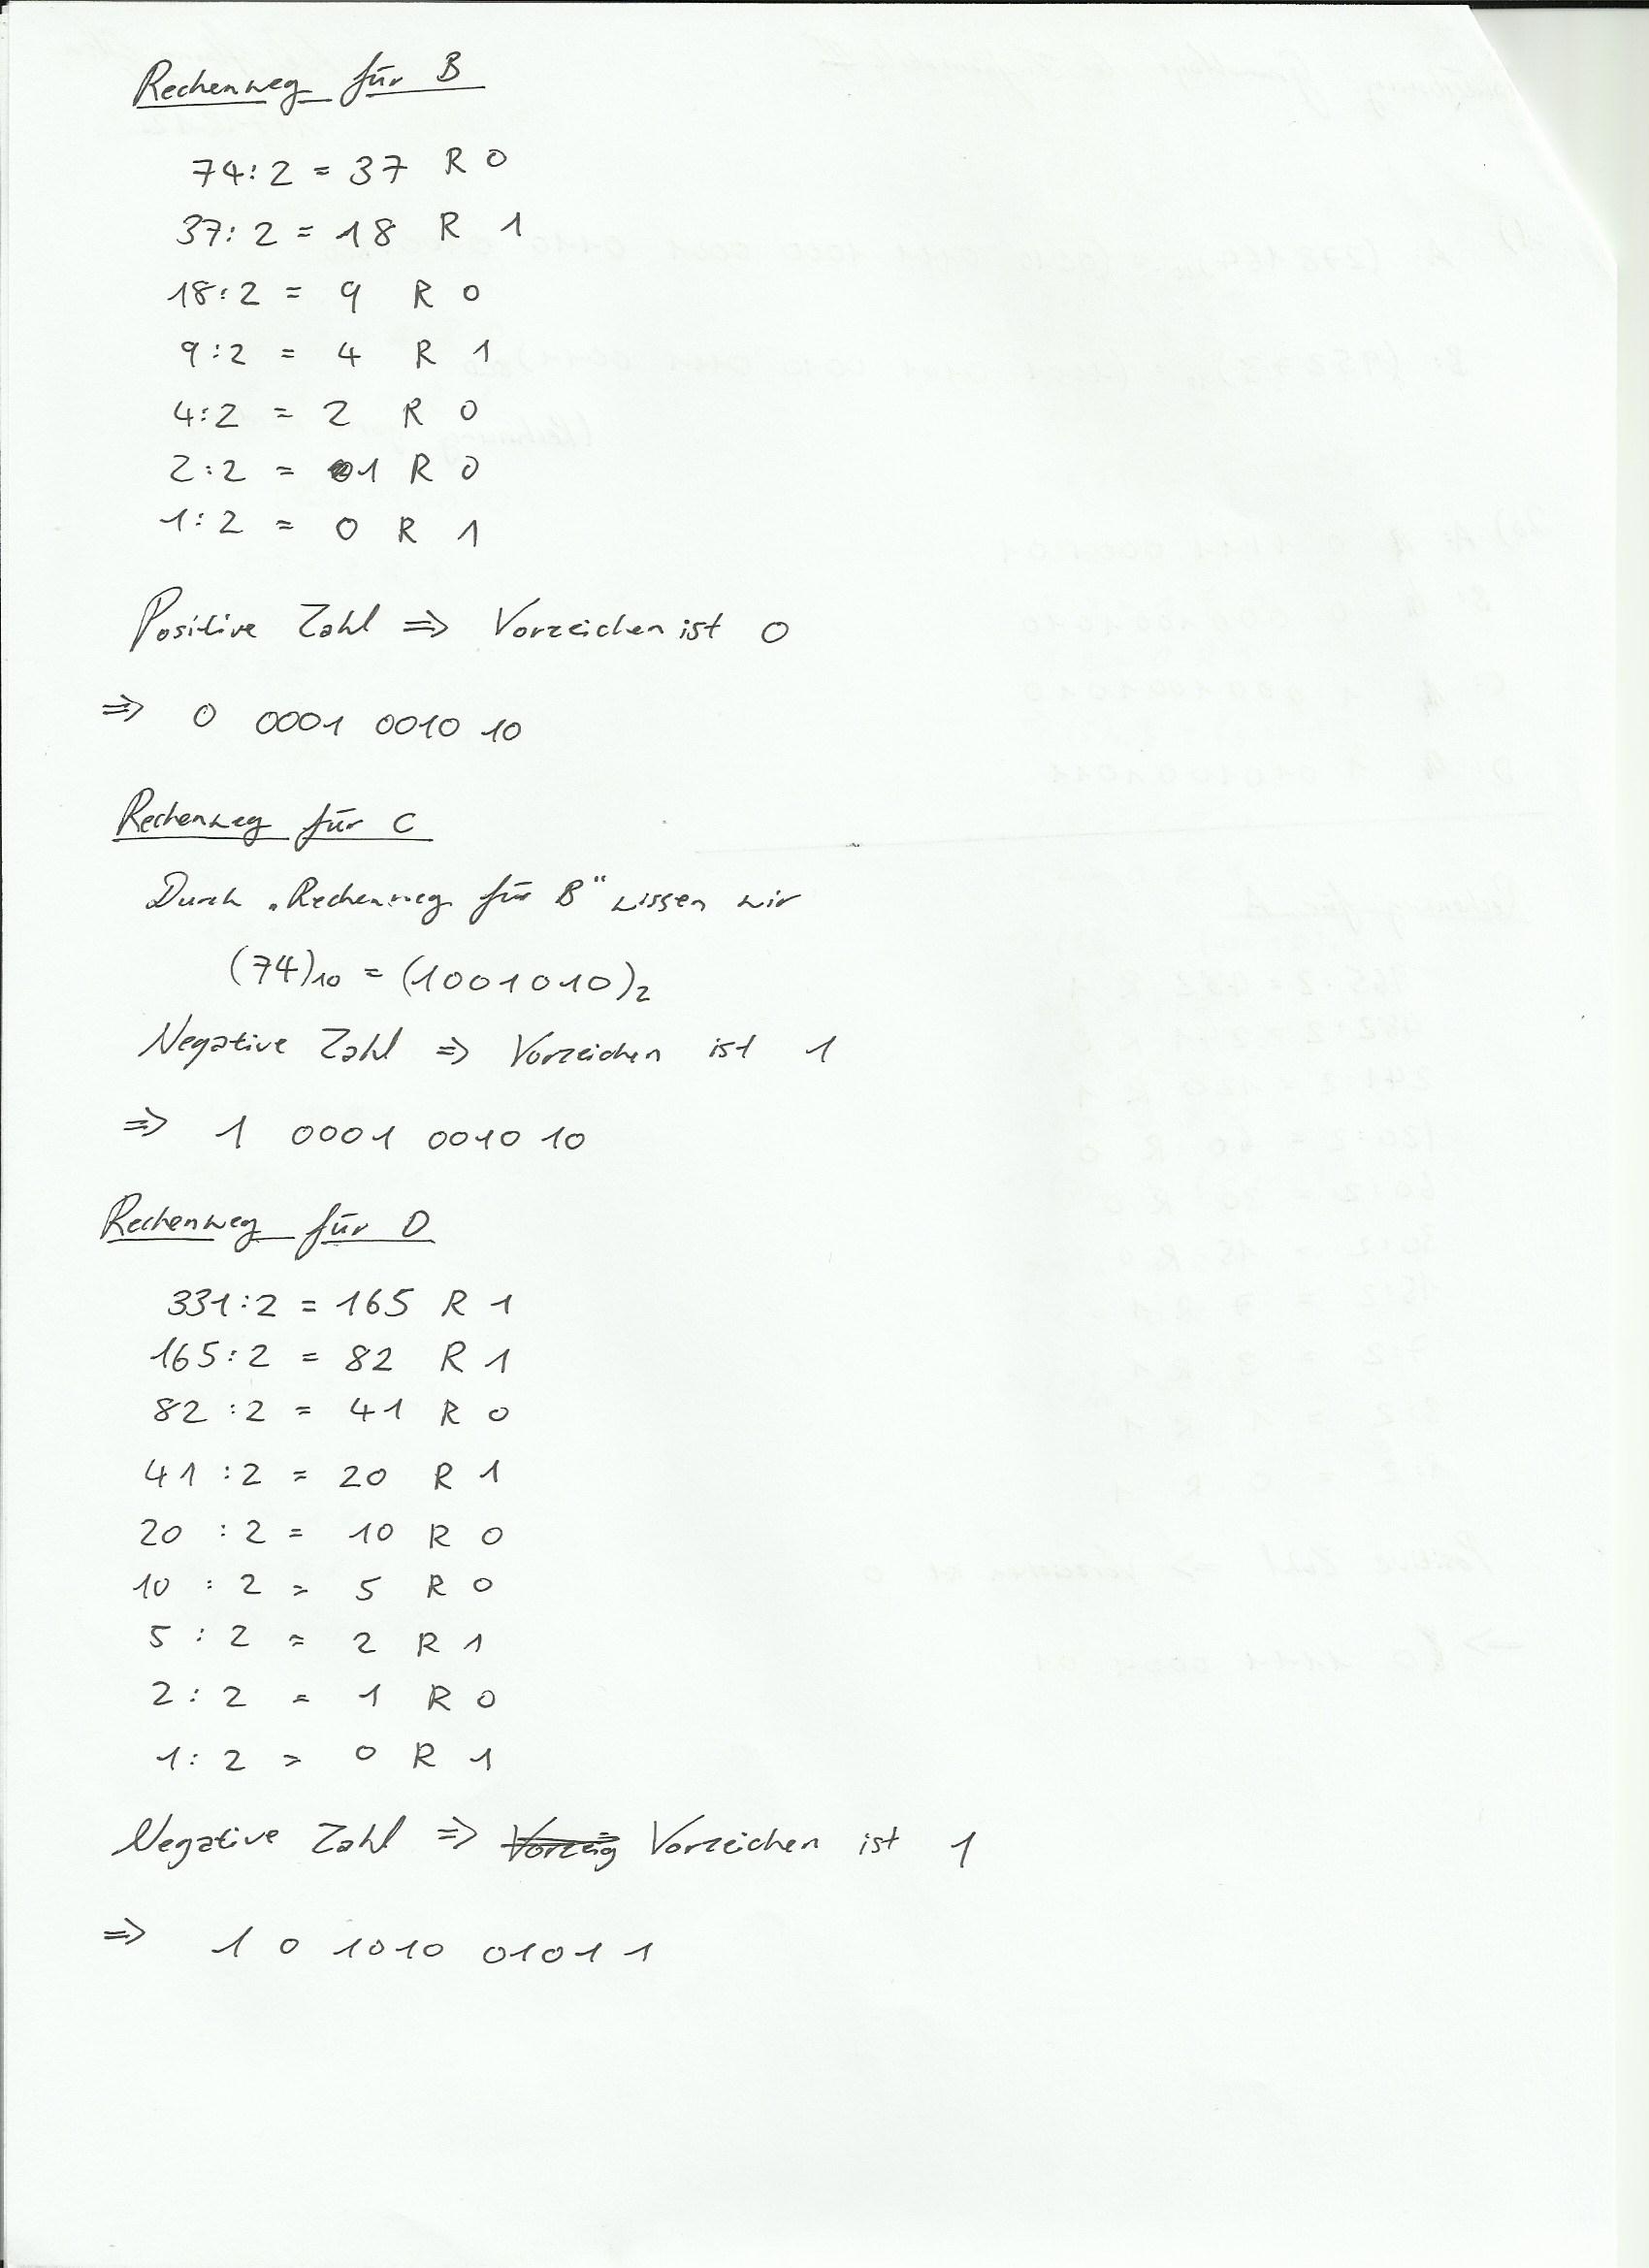 Rechenweg für B
74:2 = 37 R 0
37:2 = 18 R 1
18:2 = 9 R 0
9:2 = 4 R 1
4:2 = 2 R 0
2:2 = 1 R 0
1:2 = 0 R 1
Positive Zahl => Vorzeichen ist 0
=> 0 0001 0010 10
Rechenweg für C
Durch „Rechenweg für B“ wissen wir
(74)10 = (1001010)2
Negative Zahl => Vorzeichen ist 1
=> 1 0001 0010 10
Rechenweg für D
331:2 = 165 R 1
165:2 = 82 R 1
82:2 = 41 R 0
41:2 = 20 R 1
20:2 = 10 R 0
10:2 = 5 R 0
5:2 = 2 R 1
2:2 = 1 R 0
1:2 = 0 R 1
Negative Zahl => Vorzeichen ist 1
=> 1 0 1010 01011